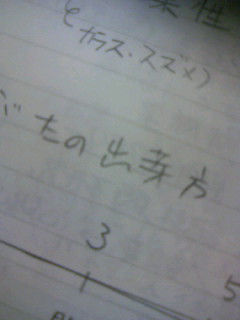 性
とカラス・スズメ)
ぶたの出芽方
3
5